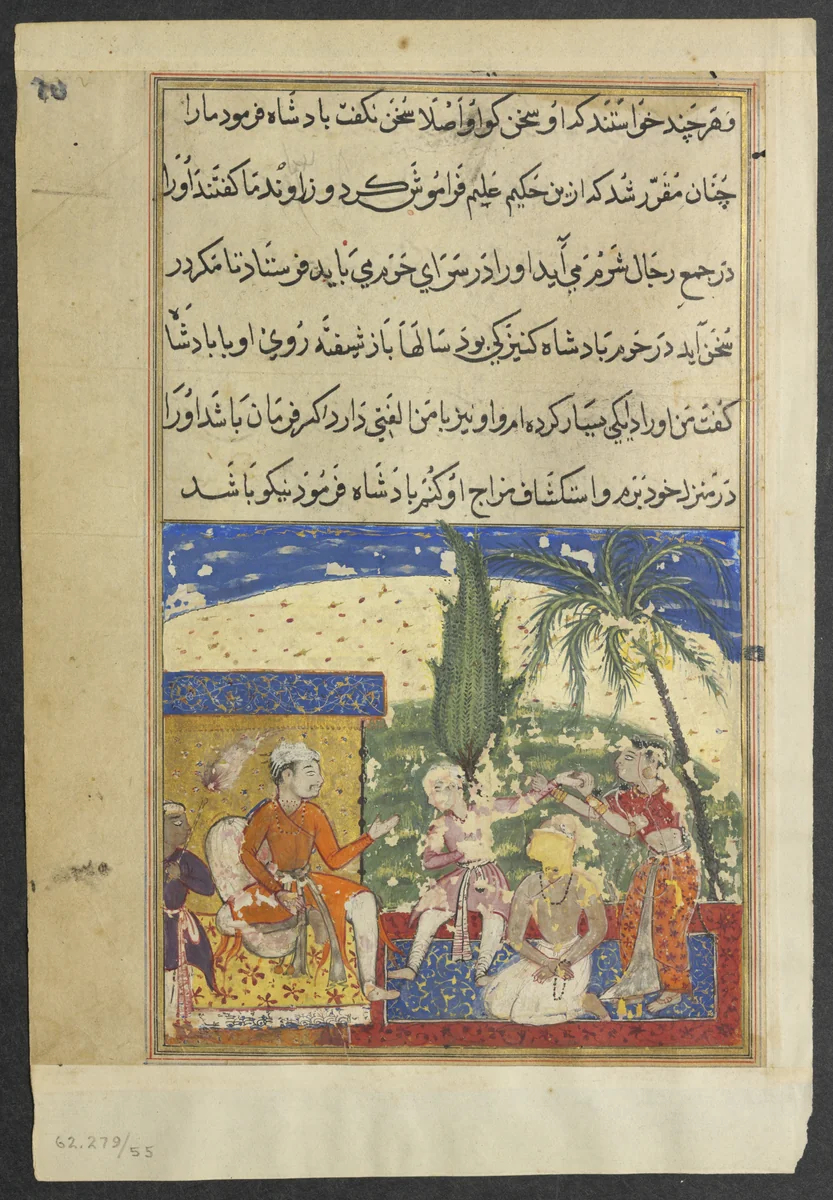 وهر چند خواستند که او سخن گوید او اصلا سخن نگفت بادشاه فرمود مارا
چنان مقرر شد که ازین حکیم علیم فراموش کرد وزرا و ندما گفتند اورا
در جمع رجال شرم می آید اورا در سرای حرم می باید فرستاد تا مکر در
سخن آید در حرم بادشاه کنیزکی بود سالها باز شیفته روی او با بادشاه
گفت من اورا دایکی بسیار کرده ام و او نیز با من الفتی دارد اکر فرمان باشد اورا
در منزل خود برم و استکشاف مزاج او کنم بادشاه فرمود نیکو باشد
62.279/55